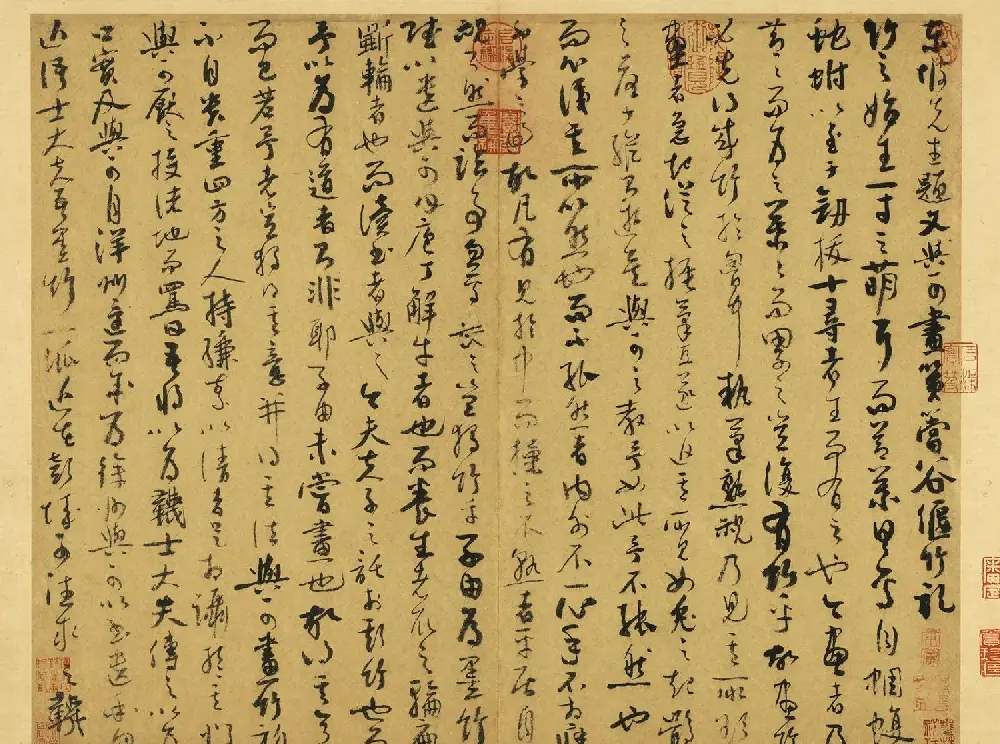 東坡先生題文與可畫篔簹谷偃竹記
竹之始生一寸之萌耳而節葉具焉自蜩蝮
蛇蚹以至于劍拔十尋者生而有之也今畫者乃
節節而為之葉葉而累之豈復有竹乎故畫竹
必先得成竹於胸中執筆熟視乃見其所欲
畫者急起從之振筆直遂以追其所見如兔之起鶻
之落少縱則逝矣與可之教予如此予不能然也
而心識其所以然也而不能然者內外不一心手不相應
不學之過也故凡有見於中而操之不熟者平居自
視了然而臨事忽焉喪之豈獨竹乎子由為墨竹
賦以遺與可曰庖丁解牛者也而養生者取之輪扁
斲輪者也而讀書者與之今夫夫子之託於斯竹也而
予以為有道者則非耶子由未嘗畫也故得其意
而已若予者豈獨得其意并得其法與可畫竹初
不自貴重四方之人持縑素以請者足相躡於其門
與可厭之投諸地而罵曰吾將以為韈士大夫傳之以為
口實及與可自洋州還而余為徐州與可以書遺余
近語士大夫吾墨竹一派近在彭城可往求之韈